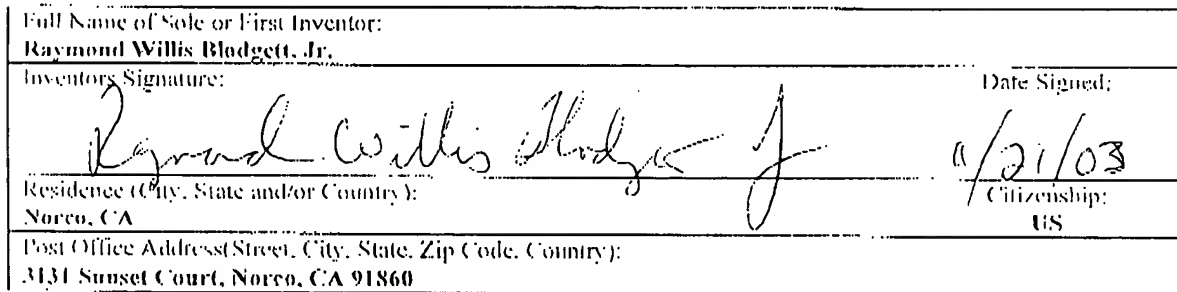 Full Name of Sole or First Inventor:
Raymond Willis Blodgett, Jr.
Inventors Signature: Date Signed:
Raymond Willis Blodgett Jr 11/21/03
Residence (City, State and/or Country): Citizenship:
Norco, CA US
Post Office Address(Street, City, State, Zip Code, Country):
3131 Sunset Court, Norco, CA 91860